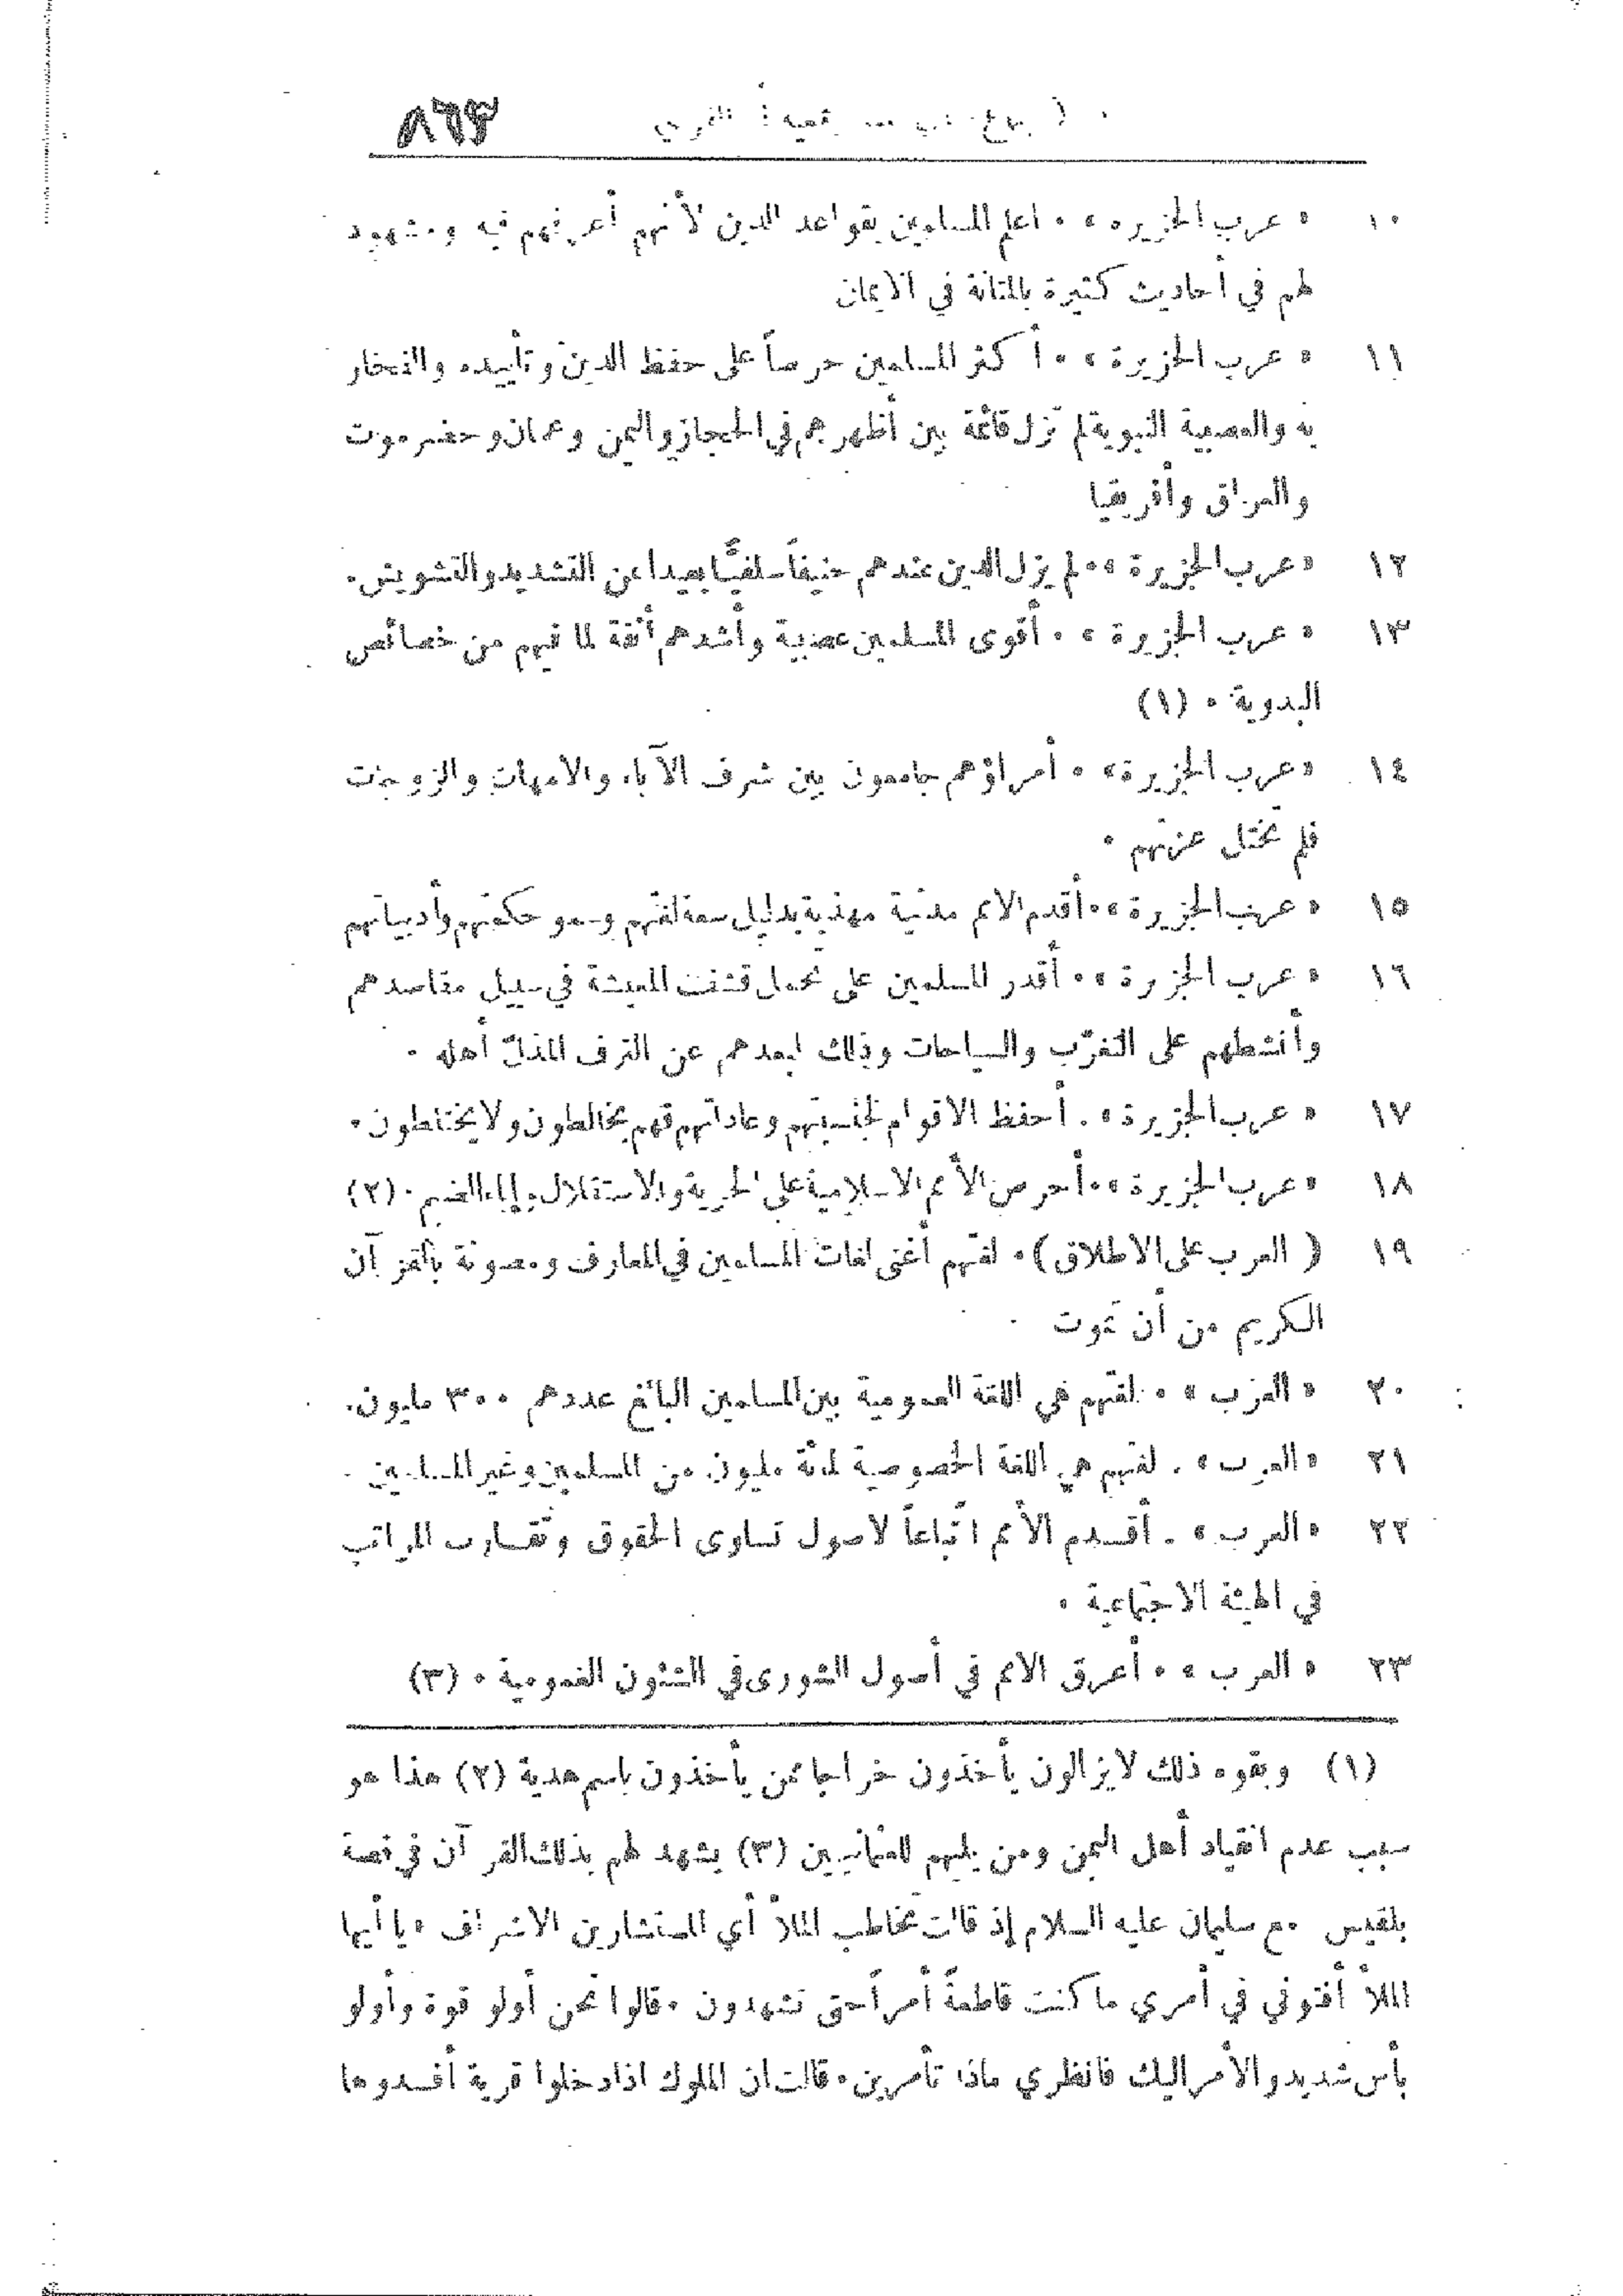 ٨٦٣
١٠ « عرب الجزيرة » ٠ اعلم المسلمين بقواعد الدين لأنهم أعرقهم فيه ومشهود
لهم في أحاديث كثيرة بالمتانة في الايمان
١١ « عرب الجزيرة » ٠ أكثر المسلمين حرصاً على حفظ الدين وتأييده والفخار
به والعصبية النبوية لم تزل قائمة بين أظهرهم في الحجاز واليمن وعمان وحضرموت
والعراق وأفريقيا
١٢ « عرب الجزيرة » ٠ لم يزل الدين عندهم حنيفاً سلفيًّا بعيدا عن التشديد والتشويش ٠
١٣ « عرب الجزيرة » ٠ أقوى المسلمين عصبية وأشدهم أنفة لما فيهم من خصائص
البدوية ٠ (١)
١٤ « عرب الجزيرة » ٠ أمراؤهم جامعون بين شرف الآباء والامهات والزوجات
فلم تختل عزتهم ٠
١٥ « عرب الجزيرة » ٠ أقدم الامم مدنية مهذبة بدليل سعة لغتهم وسمو حكمتهم وأدبياتهم
١٦ « عرب الجزيرة » ٠ أقدر المسلمين على تحمل قشف المعيشة في سبيل مقاصدهم
وأنشطهم على التغرّب والسياحات وذلك لبعدهم عن الترف المذلّ أهله ٠
١٧ « عرب الجزيرة » ٠ أحفظ الاقوام لجنسيتهم وعاداتهم فهم يخالطون ولا يختلطون ٠
١٨ « عرب الجزيرة » ٠ أحرص الأمم الاسلامية على الحرية والاستقلال وإباء الضيم ٠ (٢)
١٩ ( العرب على الاطلاق ) ٠ لغتهم أغنى لغات المسلمين في المعارف ومصونة بالقرآن
الكريم من أن تموت ٠
٢٠ « العرب » ٠ لغتهم هي اللغة العمومية بين المسلمين البالغ عددهم ٣٠٠ مليون ٠
٢١ « العرب » ٠ لغتهم هي اللغة الخصوصية لمئة مليون من المسلمين وغير المسلمين ٠
٢٢ « العرب » ٠ أقدم الأمم اتّباعاً لاصول تساوى الحقوق وتقارب المراتب
في الهيئة الاجتماعية ٠
٢٣ « العرب » ٠ أعرق الامم في أصول الشورى في الشئون العمومية ٠ (٣)
(١) وبقوه ذلك لا يزالون يأخذون خراجا ممن يأخذون باسم هدية (٢) هذا هو
سبب عدم انقياد أهل اليمن ومن يليهم للعثمانيين (٣) يشهد لهم بذلك القرآن في قصة
بلقيس مع سليمان عليه السلام إذ قالت تخاطب الملأ أي المستشارين الاشراف « يا أيها
الملأ أفتوني في أمري ما كنت قاطعةً أمراً حتى تشهدون ٠ قالوا نحن أولو قوة وأولو
بأس شديد والأمر اليك فانظري ماذا تأمرين ٠ قالت ان الملوك اذا دخلوا قرية أفسدوها